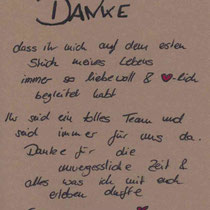 DANKE
dass ihr mich auf dem ersten
Stück meines Lebens
immer so liebevoll & ♥-lich
begleitet habt
Ihr seid ein tolles Team und
seid immer für uns da.
Danke für die
unvergessliche Zeit &
alles was ich mit euch
erleben durfte